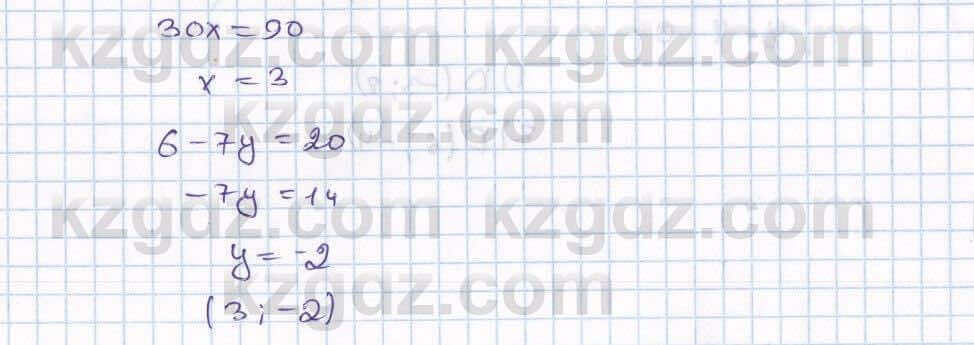 30x = 90
x = 3
6 - 7y = 20
-7y = 14
y = -2
(3; -2)
kzgdz.com kzgdz.com
kzgdz.com
kzgdz.com kzgdz.com
kzgdz.com